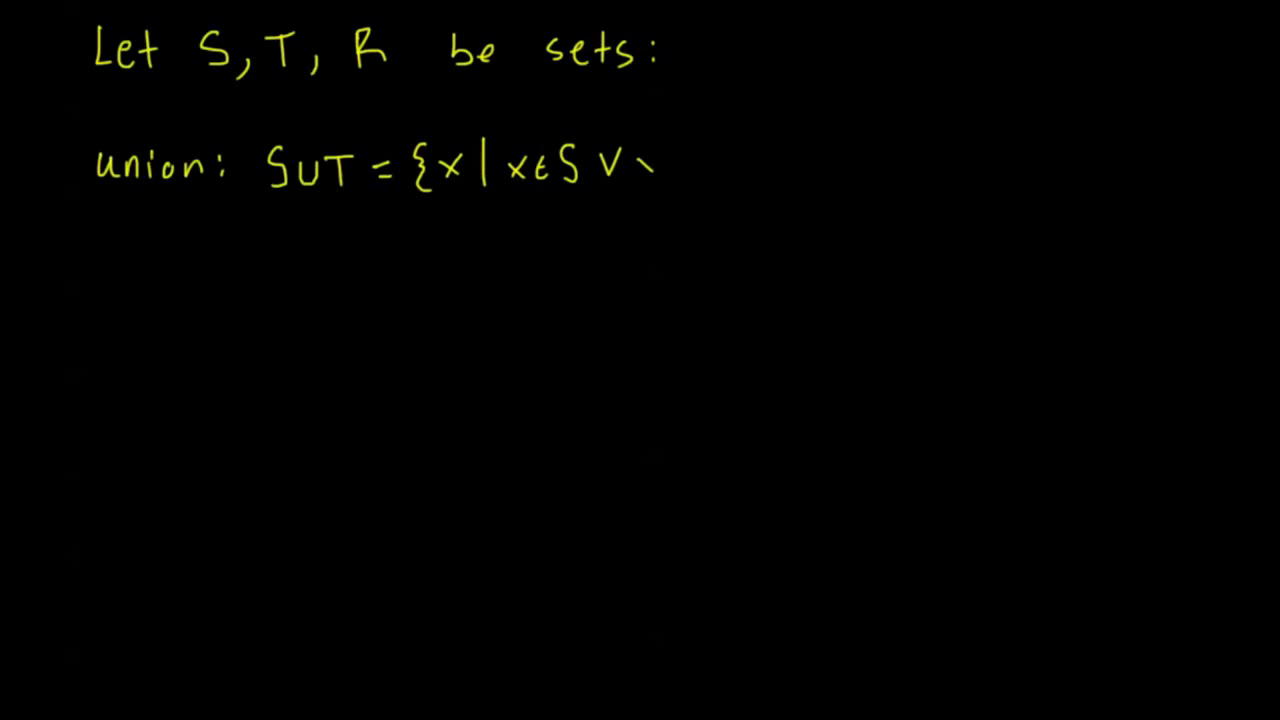 Let S, T, R be sets:
union: S∪T = {x | x∈S ∨